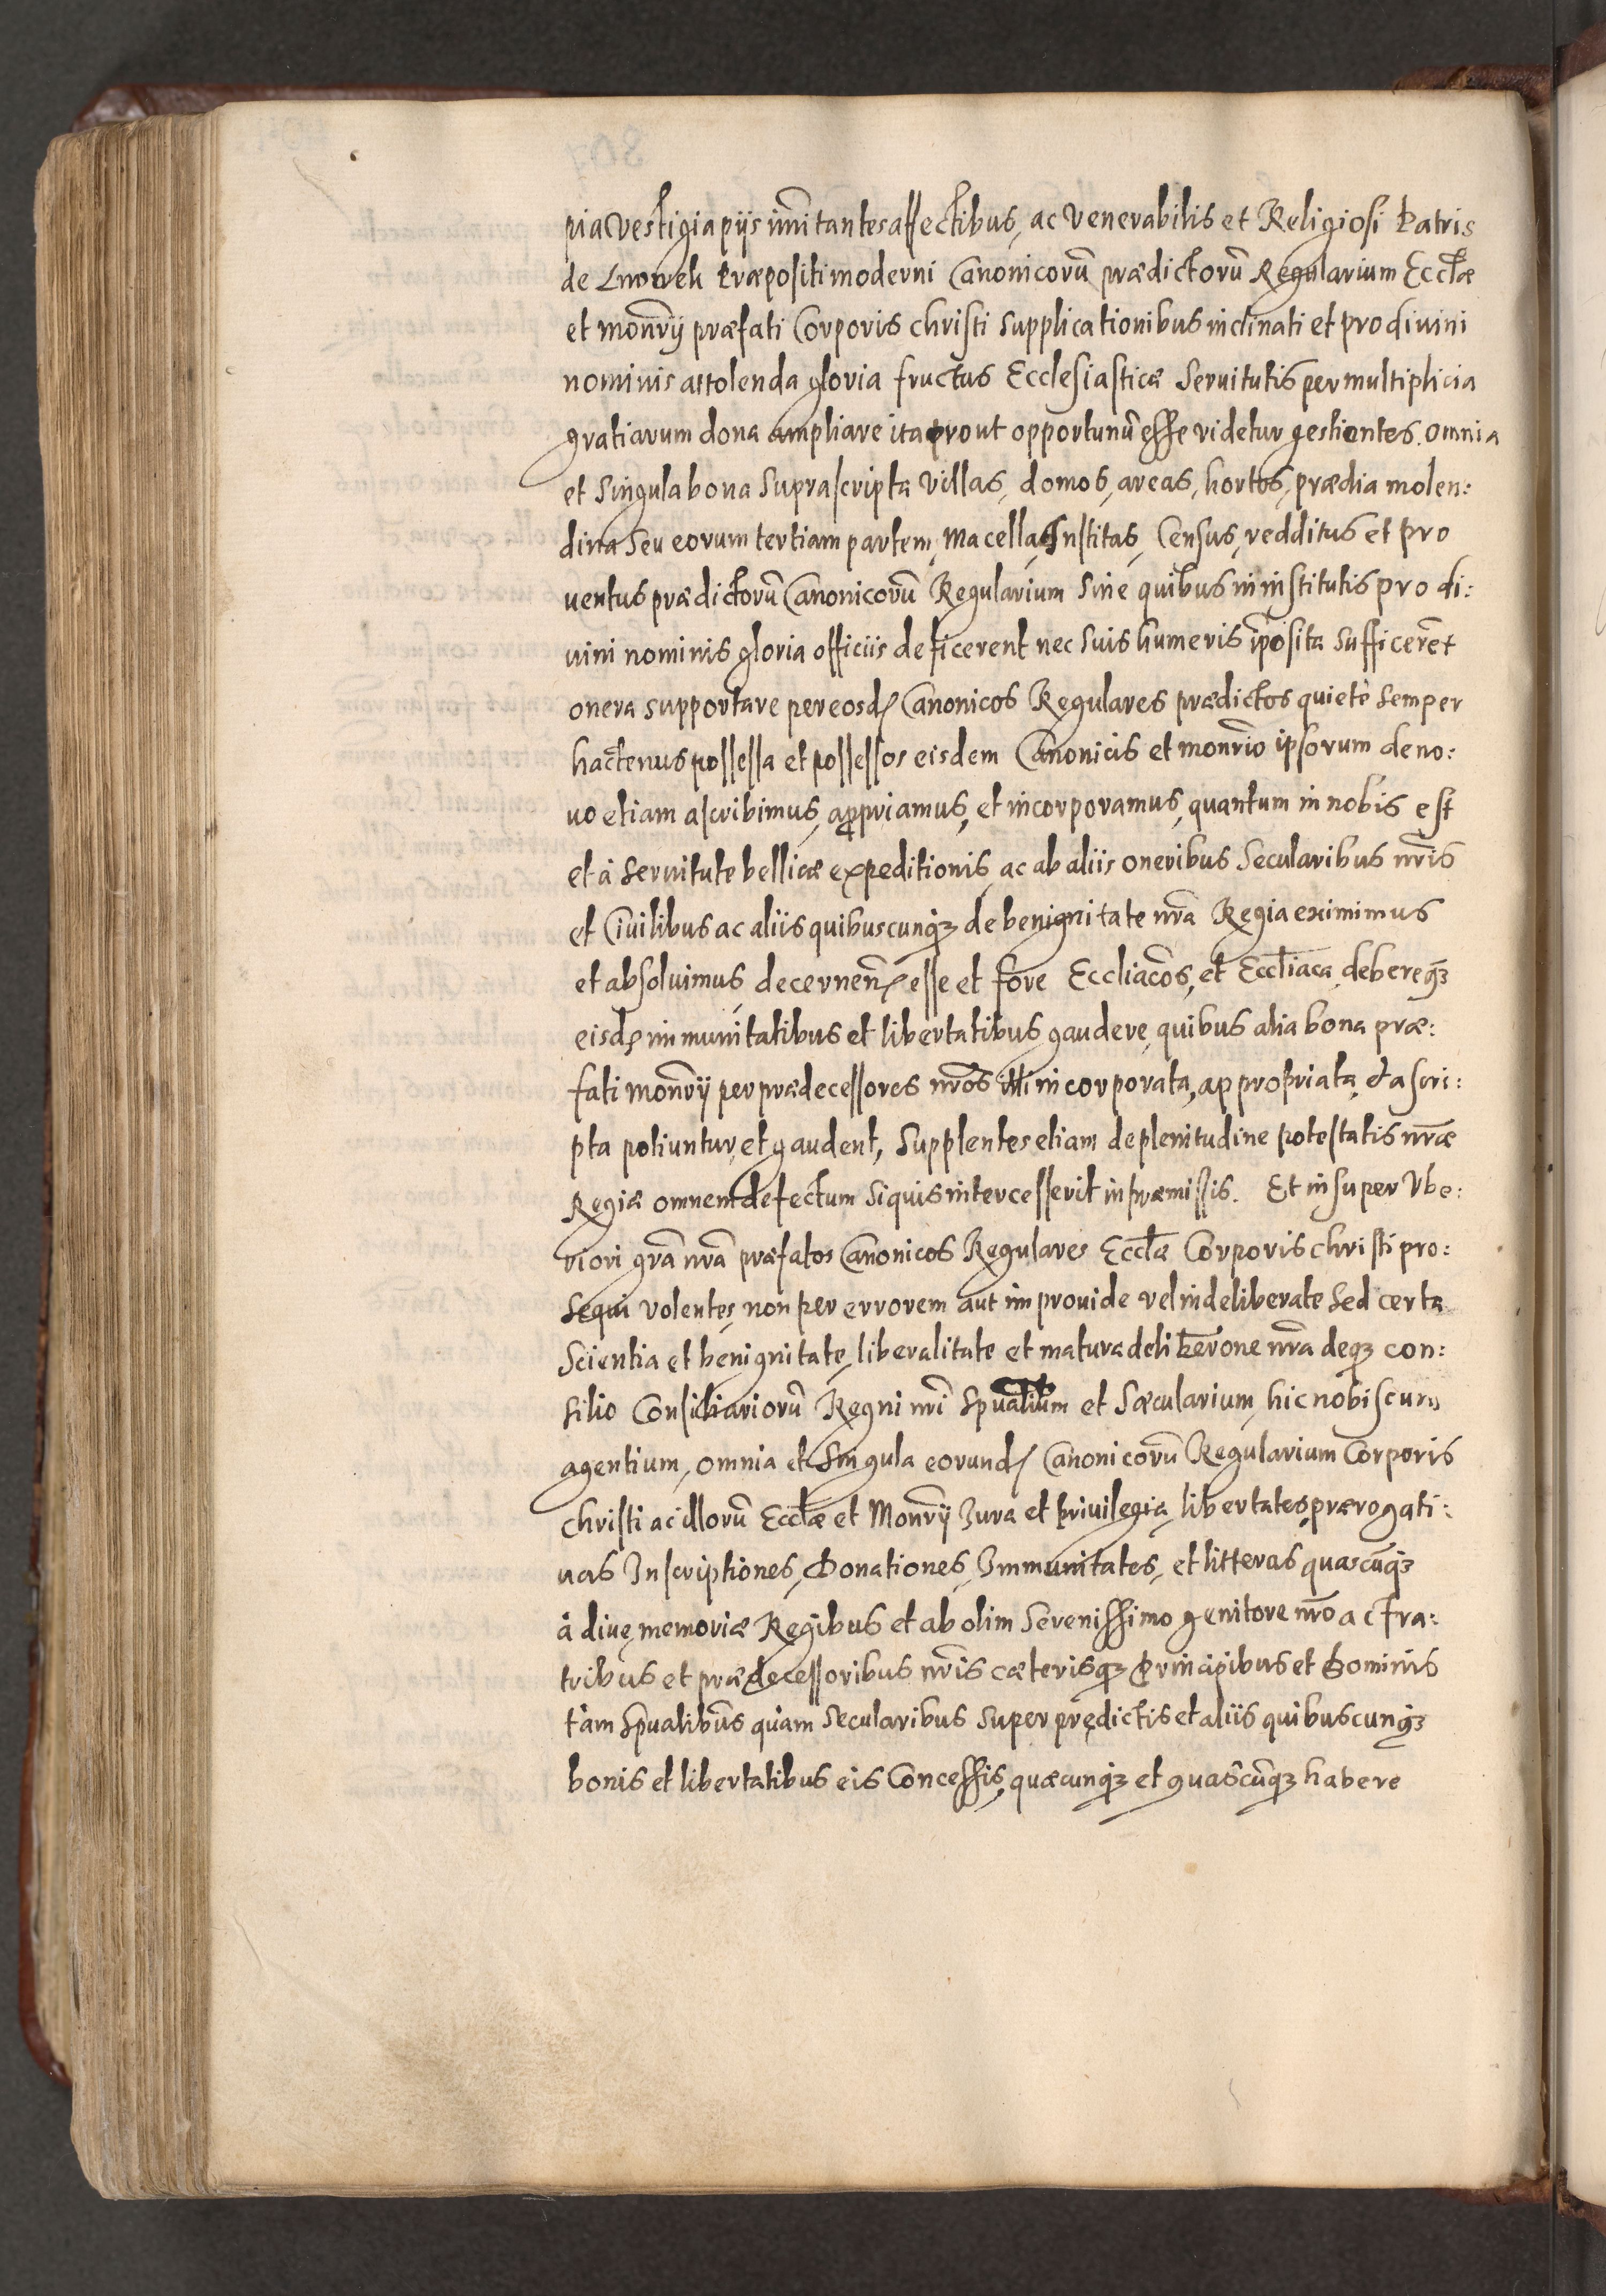 pia Vestigia pijs imĩtantes affectibus, ac Venerabilis et Religiosi Patris
de Lwoweh Præpositi moderni Canonicorũ prædictorũ Regularium Eccłæ
et monrỹ præfati Corporis christi supplicationibus inclinati et pro diuini
nominis attolenda gloria fructus Ecclesiasticæ Seruitutis per multiplicia
gratiarum dona ampliare ita prout opportunũ esse videtur gestientes. Omnia
et Singula bona Suprascripta Villas, domos, areas, hortos, prædia molen:
dina Seu eorum tertiam partem, Macella, Institas, Census, redditus et pro
uentus prædictorũ Canonicorũ Regularium Sine quibus in institutis pro di:
uini nominis gloria officiis deficerent nec Suis humeris ĩposita Sufficerẽt
onera supportare per eosd. Canonicos Regulares prædictos quietè Semper
hactenus possessa et possessos eisdem Canonicis et monrĩo ipsorum de no:
uo etiam ascribimus, appropriamus, et incorporamus, quantum in nobis est
et à Seruitute bellicæ expeditionis, ac ab aliis oneribus Secularibus nr̃is
et Ciuilibus ac aliis quibuscunqȝ de benignitate nr̃a Regia eximimus
et absoluimus, decernen. esse et fore Eccliacõs, et Eccłiaca, debereqȝ
eisd. immunitatibus et libertatibus gaudere, quibus alia bona præ:
fati monrỹ per prædecessores nr̃os illi incorporata, appropriata, et ascri:
pta potiuntur, et gaudent, Supplentes etiam de plenitudine potestatis nr̃æ
Regiæ omnem defectum Siquis intercesserit in præmissis. Et insuper Vbe:
riori gr̃a nr̃a præfatos Canonicos Regulares Eccłæ Corporis christi pro:
Sequi Volentes, non per errorem aut improuide vel indeliberate Sed certa
Scientia et benignitate, liberalitate et matura deliberõne nr̃a deqȝ con:
Silio Consiliariorũ Regni nr̃i Spualium et Sæcularium, hic nobiscum
agentium, omnia et Singula eorund. Canonicorũ Regularium Corporis
christi ac illorũ Eccłæ et Monrỹ Jura et priuilegia, libertates, prærogati:
uas Inscriptiones, Donationes, Immunitates, et litteras quascũqȝ
à diuę memoriæ Regibus et ab olim Serenissimo genitore nr̃o ac fra:
tribus et prædecessoribus nr̃is cæterisqȝ Principibus et Dominis
tàm Sp̃ualibus quàm Secularibus Super prędictis et aliis quibuscunqȝ
bonis et libertatibus eis Concessis, quæcunqȝ et quascũqȝ habere